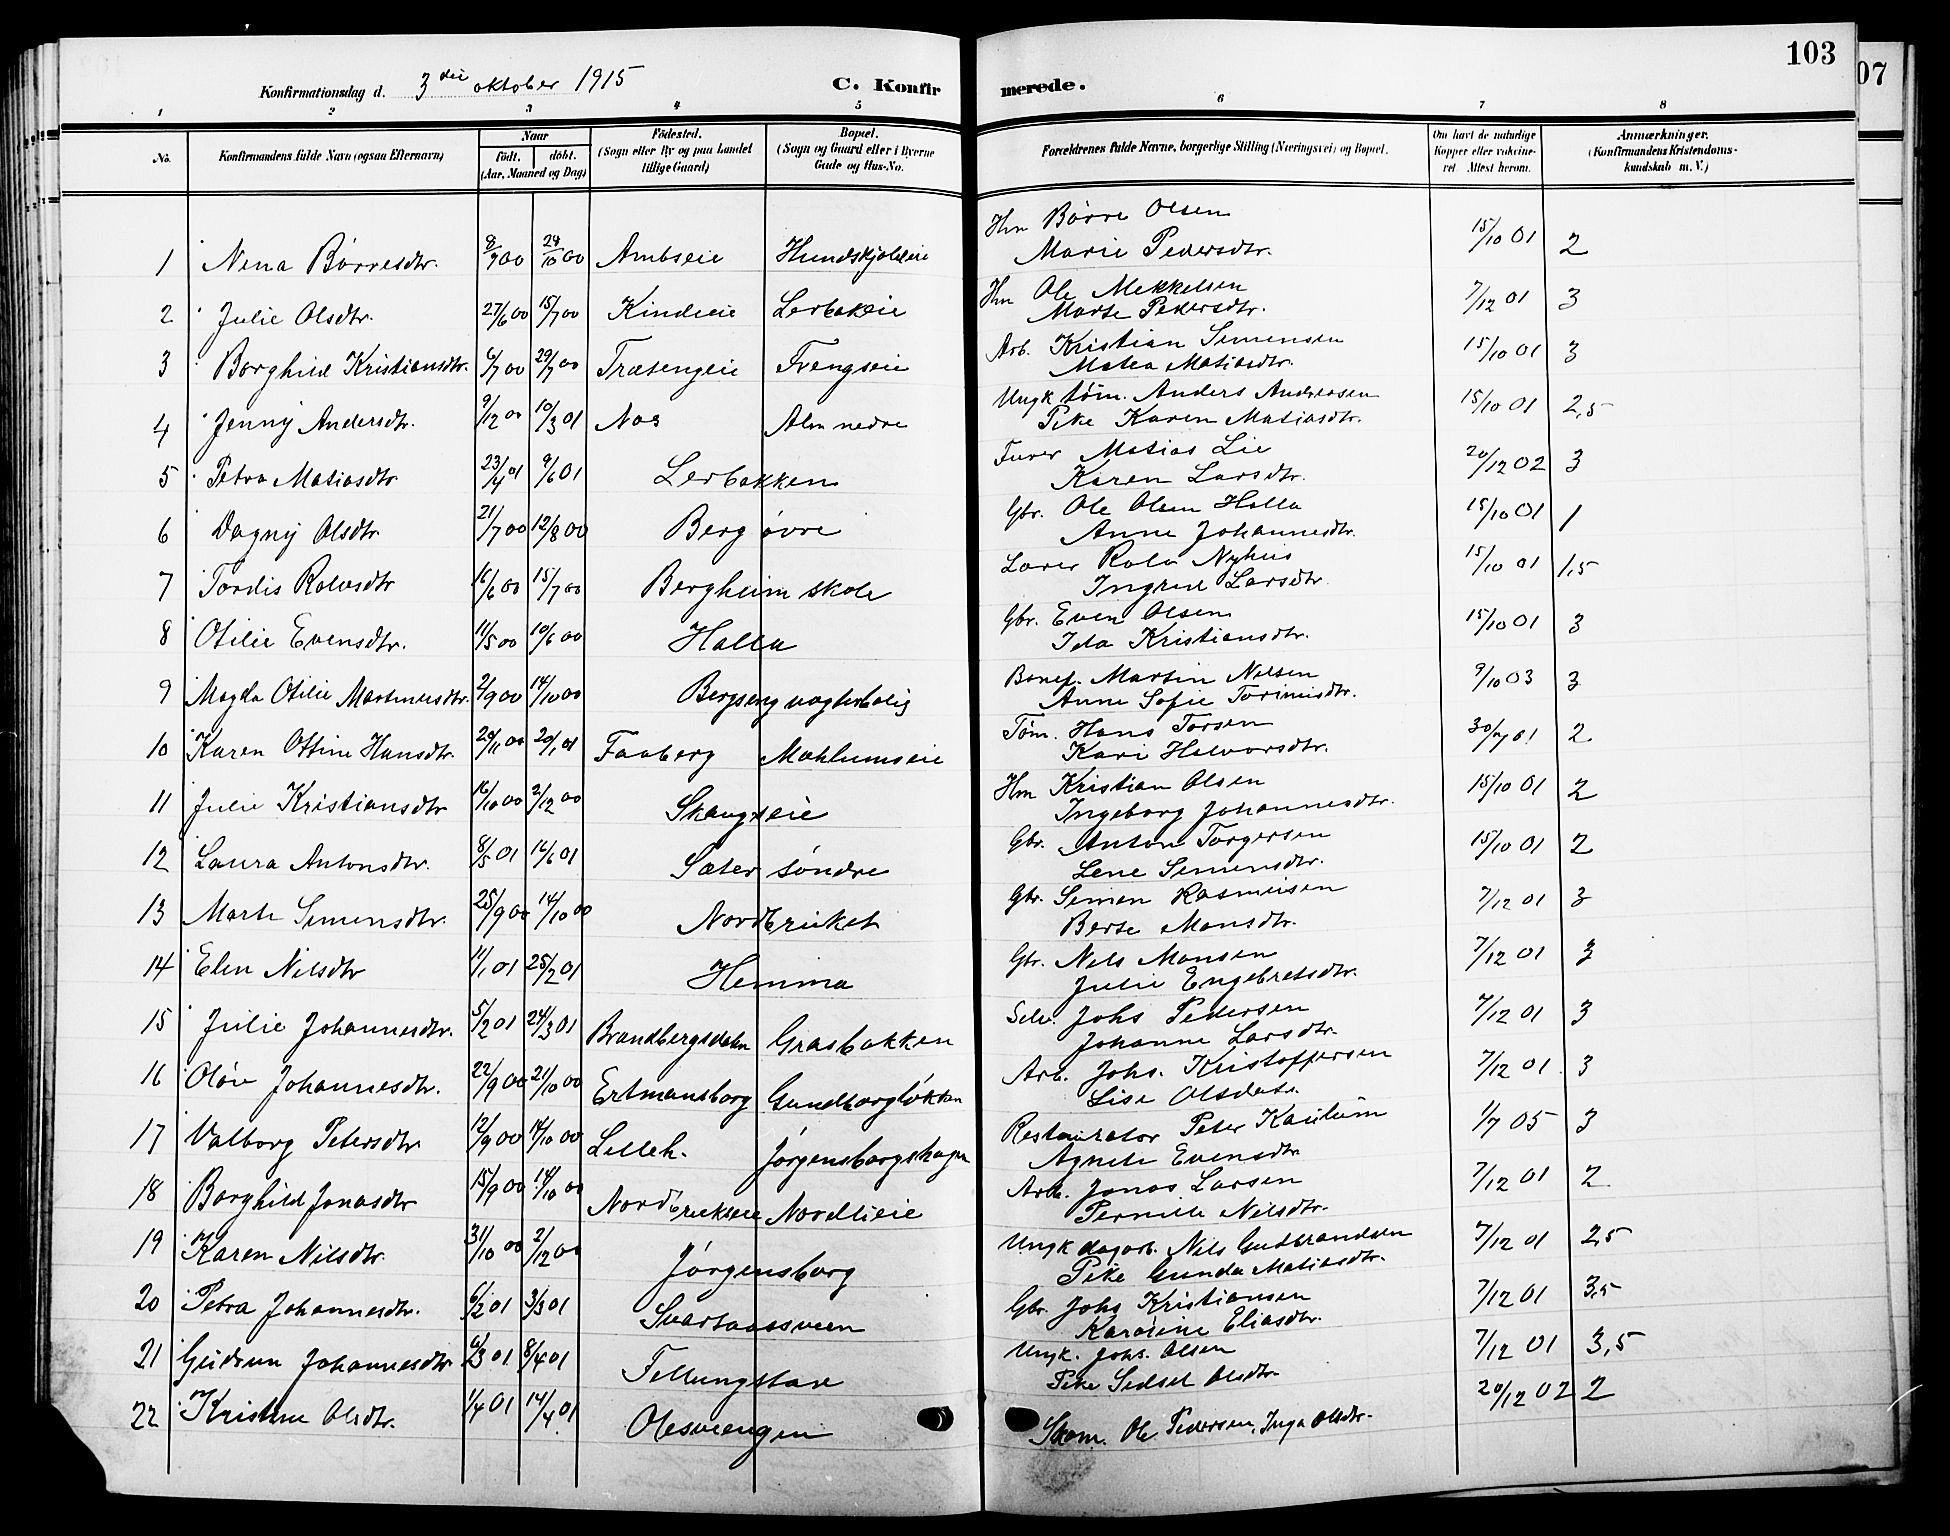 103
07
Konfirmationsdag d. 3die oktober 1915
C. Konfirmerede.
1 2 3 4 5 6 7 8
No.
Konfirmandens fulde Navn (ogsaa Efternavn)
Naar
födt. döbt.
(Aar, Maaned og Dag)
Födested.
(Sogn eller By og paa Landet
tillige Gaard)
Bopæl.
(Sogn og Gaard eller i Byerne
Gade og Hus-No.
Forældrenes fulde Navne, borgerlige Stilling (Næringsvei) og Bopæl.
Om havt de naturlige
Kopper eller vakcine-
ret. Attest herom.
Anmærkninger.
(Konfirmandens Kristendoms-
kundskab m. V.)
1 Nena Börresdtr. 8/7 00 28/10 00 Ambseie Hundskjoleie Hm Börre Olsen 15/10 01 2
Marie Pedersdtr.
2 Julie Olsdtr. 27/6 00 15/7 00 Kindseie Lerbakeie Hm Ole Mekkelsen 7/12 01 3
Marte Pedersdtr.
3 Borghild Kristiansdtr. 6/7 00 29/7 00 Træsengeie Frengseie Arb. Kristian Simensen 15/10 01 3
Matea Matiasdtr.
4 Jenny Andersdtr. 9/12 00 10/3 01 Nos Alm nedre Ungk tøm. Anders Andersen 15/10 01 2,5
Pike Karen Matiasdtr.
5 Petra Matiasdtr 23/4 01 9/6 01 Lerbakken Furer Matias Lie 20/12 02 3
Karen Larsdtr.
6 Dagny Olsdtr 21/7 00 12/8 00 Berg övre Gbr. Ole Olsen Holla 15/10 01 1
Anne Johannesdtr.
7 Tordis Rolvsdtr 16/6 00 15/7 00 Bergheim skole Lærer Rolv Nyhus 15/10 01 1,5
Ingrid Larsdtr.
8 Otilie Evensdtr. 11/5 00 10/6 00 Holla Gbr. Even Olsen 15/10 01 3
Ida Kristiansdtr.
9 Magda Otilie Martinusdtr. 2/9 00 14/10 00 Bergseng vogterbolig Banef. Martin Nilsen 9/10 03 3
Anne Sofie Torinusdtr.
10 Karen Ottine Hansdtr. 29/11 00 20/1 01 Faaberg Mæhlumseie Tøm. Hans Torsen 30/7 01 2
Kari Halvorsdtr.
11 Julie Kristiansdtr 16/10 00 2/12 00 Skaugseie Hm Kristian Olsen 15/10 01 2
Ingeborg Johannesdtr.
12 Laura Antonsdtr. 8/5 01 16/6 01 Sæter söndre Gbr. Anton Torgersen 15/10 01 2
Lene Simensdtr.
13 Marte Simensdtr. 25/9 00 14/10 00 Nordbruket Gbr. Simen Rasmusen 7/12 01 3
Berte Monsdtr.
14 Elen Nilsdtr 11/1 01 25/2 01 Hemma Gbr. Nils Monsen 7/12 01 3
Julie Engebretsdtr.
15 Julie Johannesdtr. 5/2 01 24/3 01 Brandbergsdalen Grasbakken Selv. Johs Pedersen 7/12 01 3
Johanne Larsdtr.
16 Olöve Johannesdtr. 22/9 00 21/10 00 Ertmansborg Gundborgløkken Arb. Johs. Kristoffersen 7/12 01 3
Lise Olsdatr.
17 Valborg Petersdtr 12/9 00 14/10 00 Lilleh. Jørgensborgshagen Restauratør Peter Kaulum 1/7 05 3
Agnete Evensdtr
18 Borghild Jonasdtr 15/9 00 14/10 00 Nordbrukseie Nordlieie Arb. Jonas Larsen 7/12 01 2
Pernille Nilsdtr.
19 Karen Nilsdtr. 31/10 00 2/12 00 Jörgensborg Ungk dagarb. Nils Gudbrandsen 7/12 01 2,5
Pike Gunda Matiasdtr.
20 Petra Johannesdtr. 6/2 01 3/3 01 Svartaassveen Gbr. Johs Kristiansen 7/12 01 3,5
Karoline Eliasdtr.
21 Gudrun Johannesdtr 6/3 01 8/4 01 Fellungstare Ungk. Johs. Olsen 7/12 01 3,5
Pike Sidsel Olsdtr.
22 Kristine Olsdtr. 1/4 01 14/4 01 Olesveengen Skom. Ole Pedersen, Inga Olsdtr. 20/12 02 2